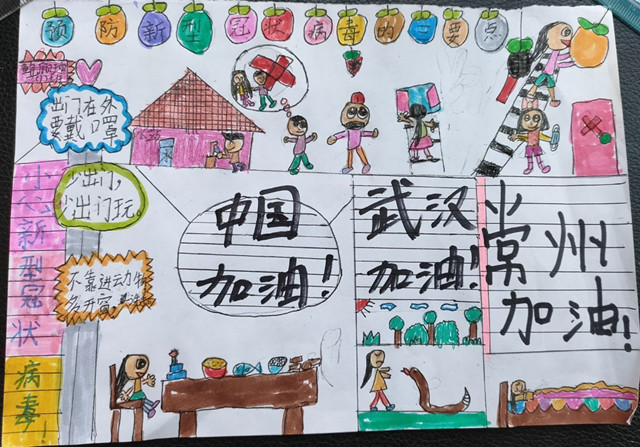 预防新型冠状病毒的必要点
出门在外
要戴口罩
少出门,
少出门玩。
不靠进动物
多开窗,
小心新型冠状病毒!
中国
加油!
武汉
加油!
常州
加油!